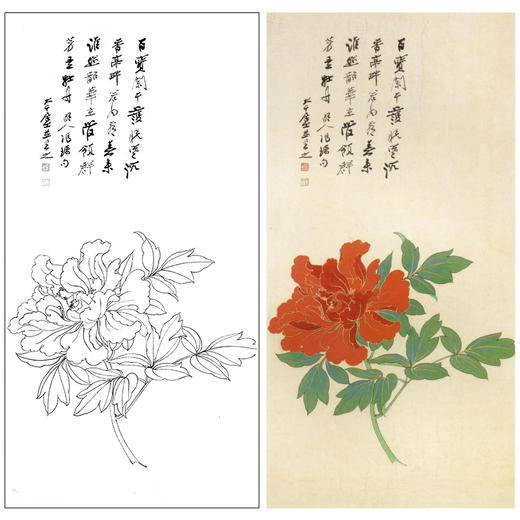 百寶闌干護曉寒沉
香亭畔若為看春來
誰作韶華主總領群
芳是牡丹 明人馮琦句
大千
百寶闌干護曉寒沉
香亭畔若為看春來
誰作韶華主總領群
芳是牡丹 明人馮琦句
大千